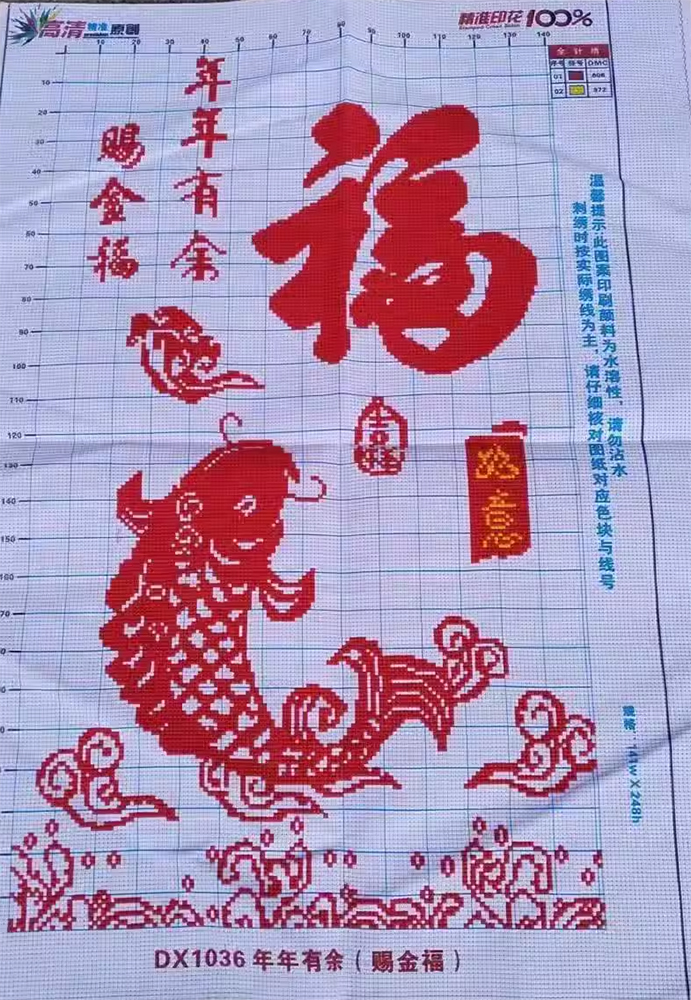 高清 精准 原创
精准印花100%
10 20 30 40 50 60 70 80 90 100 110 120 130 140
全针绣
序号 符号 DMC
01 606
02 972
10
20
30
40
50
60
70
80
90
100
110
120
130
140
150
160
年年有余
赐金福
福
吉祥
如意
温馨提示:此图案印刷颜料为水溶性,请勿沾水
刺绣时按实际绣线为主,请仔细核对图纸对应色块与线号
规格:141w X 248h
DX1036 年年有余(赐金福)